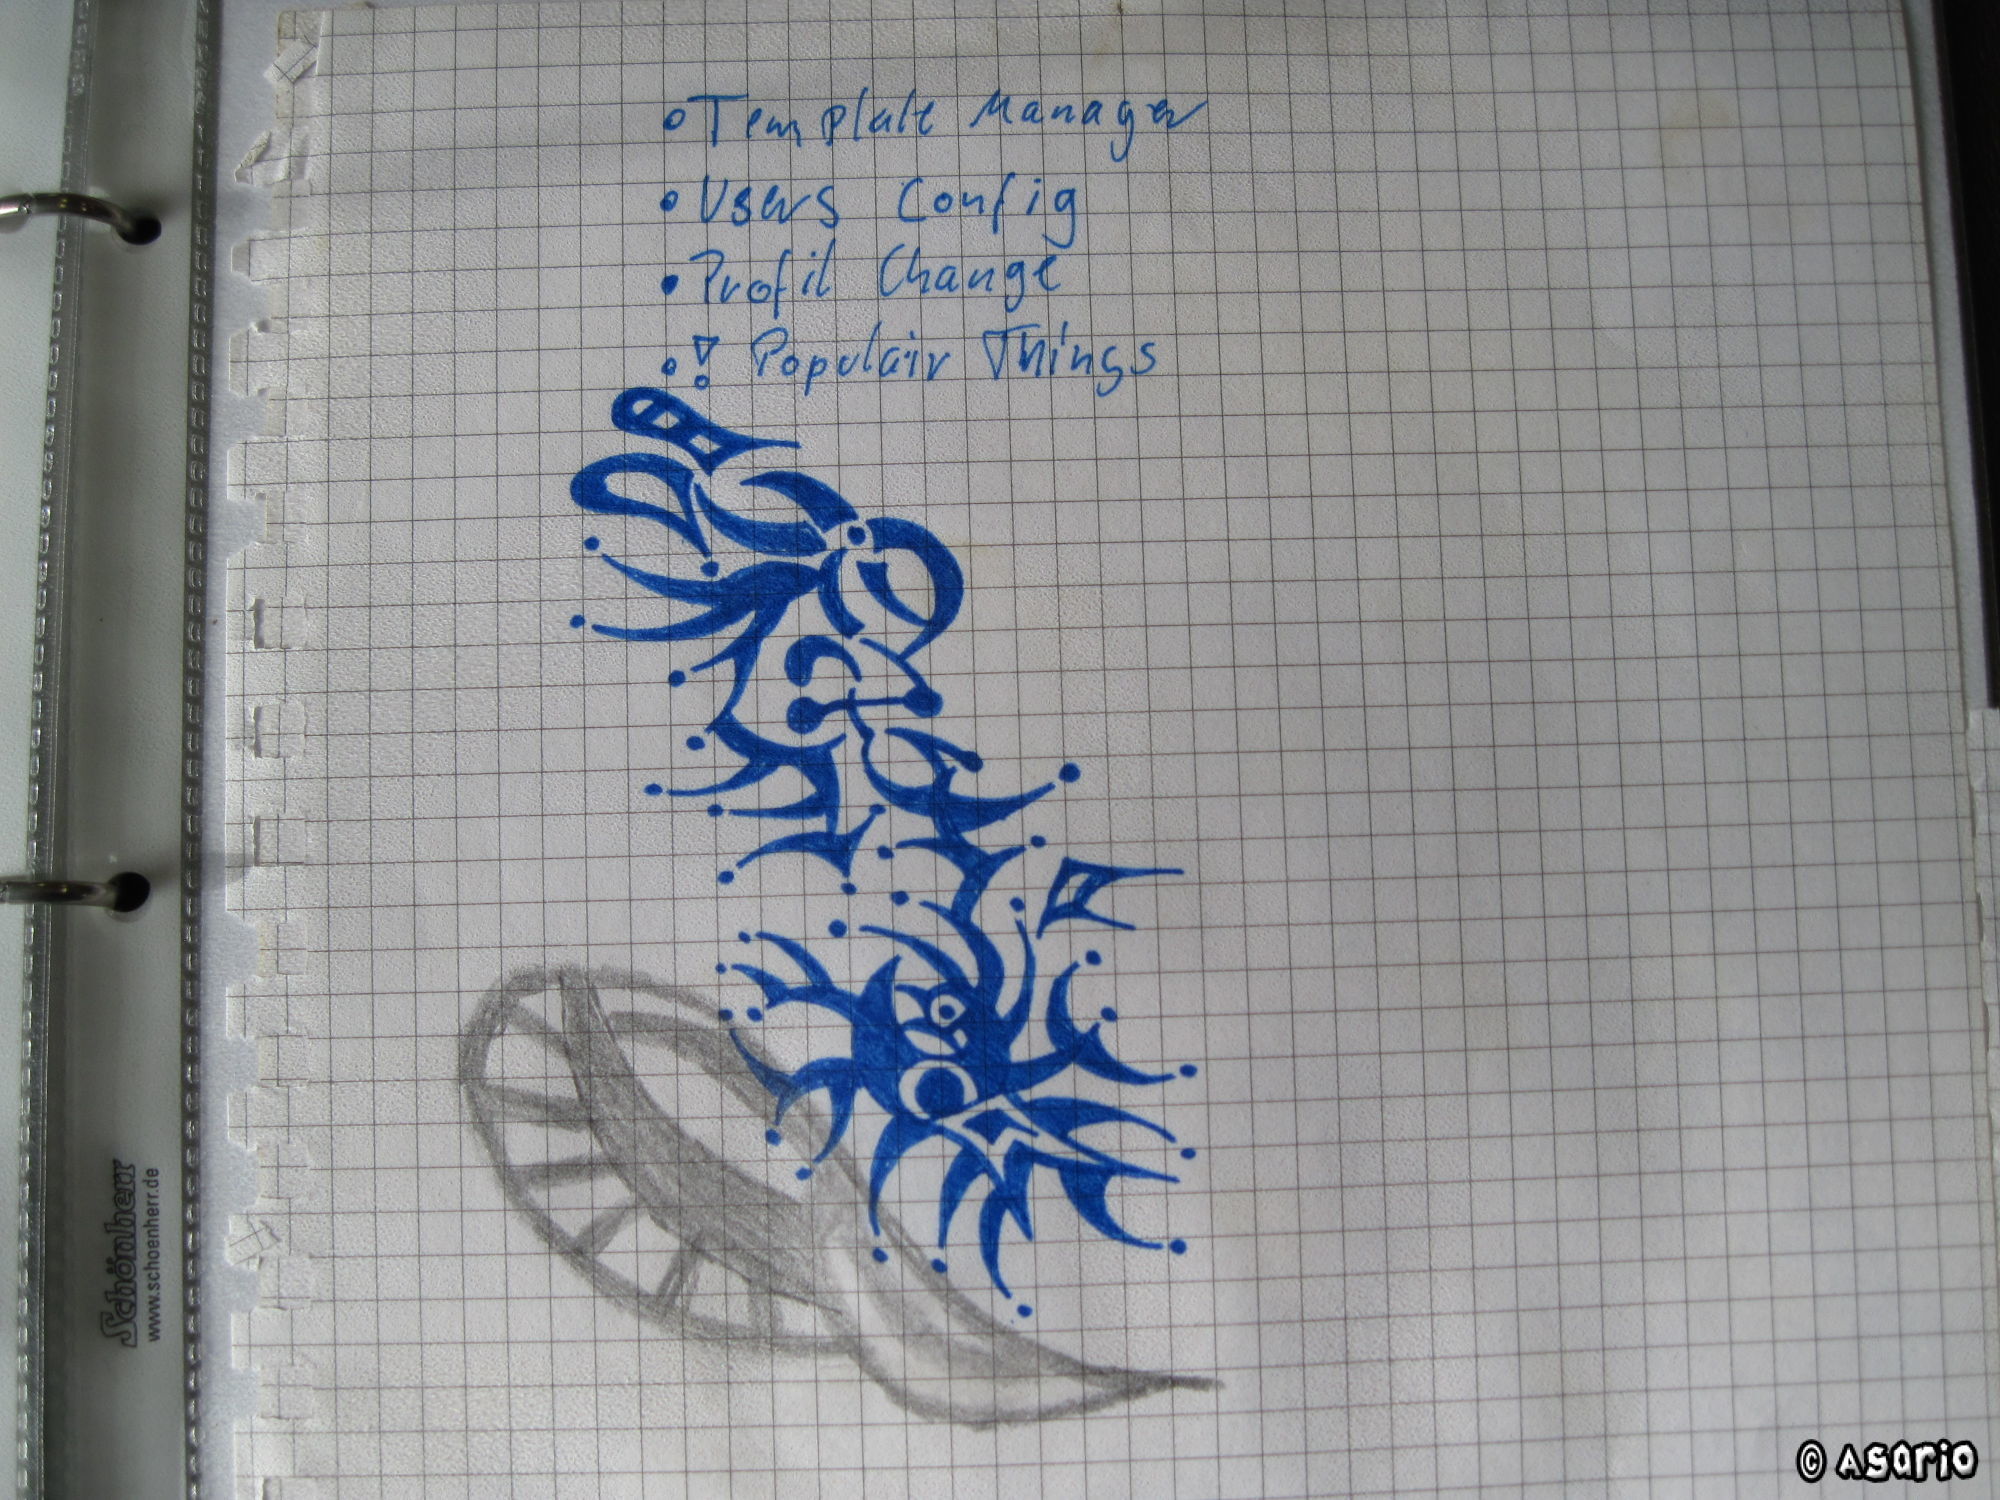 • Template Manager
• Users Config
• Profil Change
• ! Populair Things
Schönherr
www.schoenherr.de
© Asario